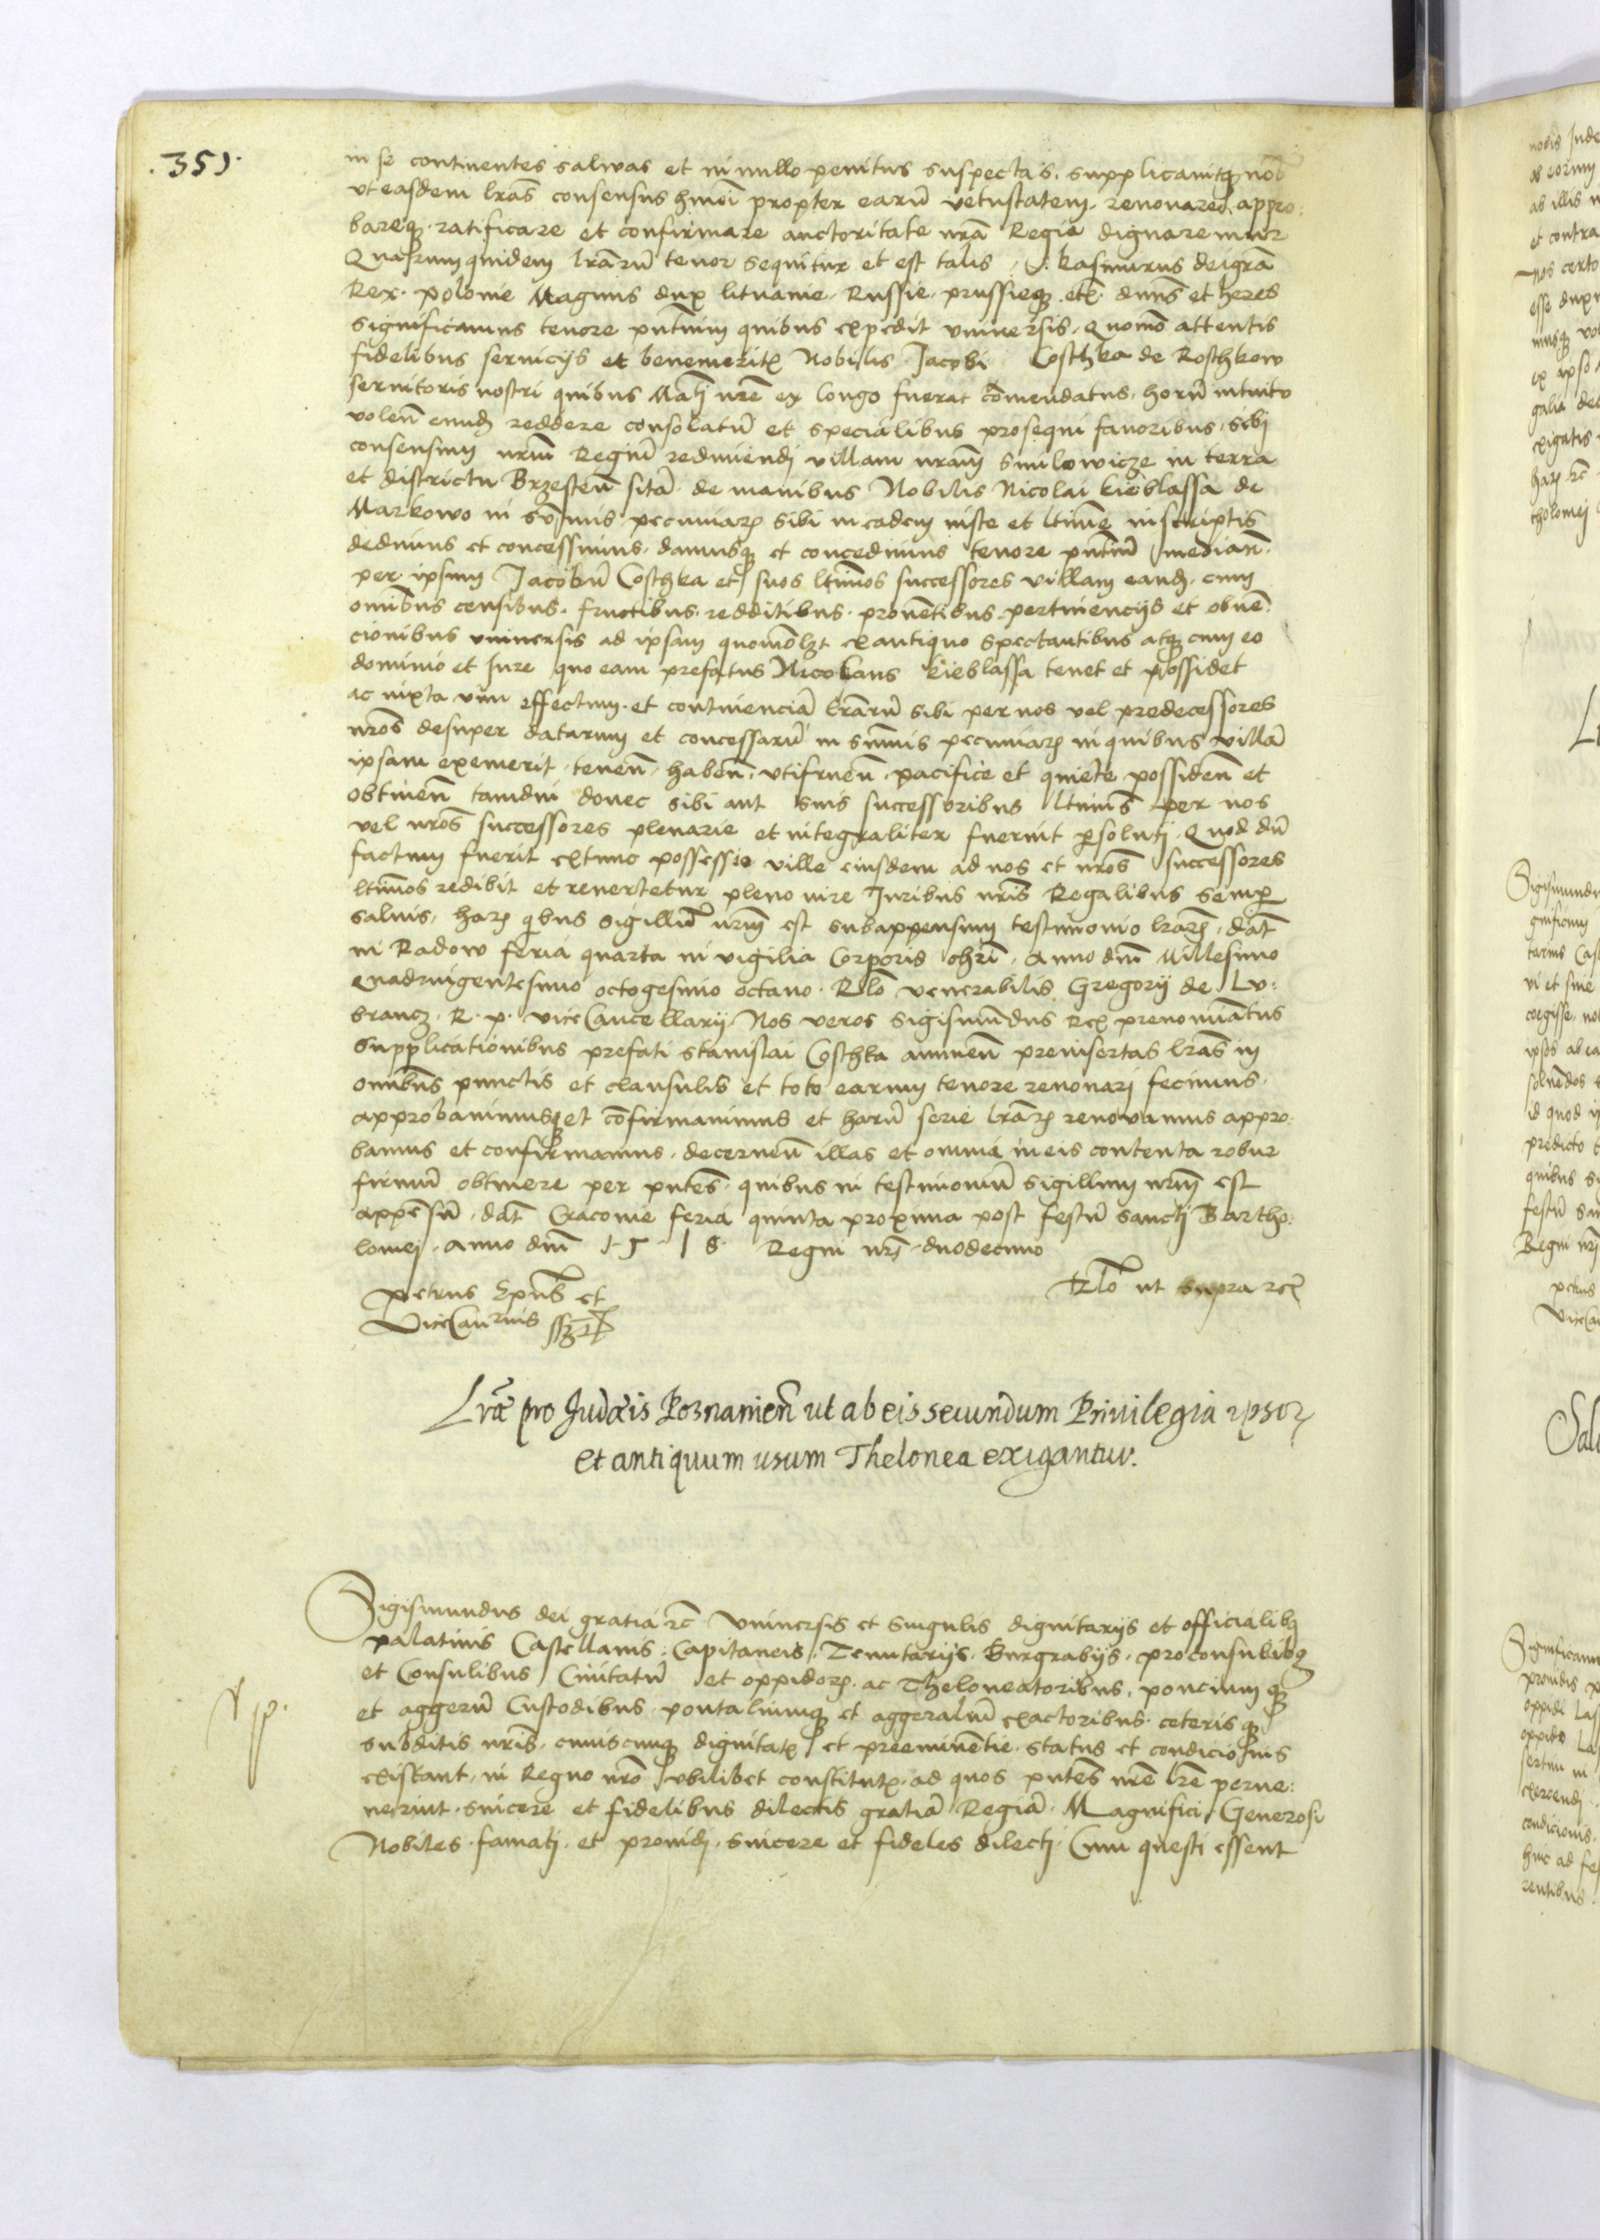 351.
in se continentes salvas et in nullo penitus suspectas. supplicavitq nob
ut easdem lras consensus hmoi propter earu vetustatem renovare appro:
bareq ratificare et confirmare auctoritate nra Regia dignaremur
Quarum quidem lraru tenor sequitur et est talis Kasimirus dei gra
Rex polonie Magnus dux lituanie Russie prussieq etc dnns et heres
significamus tenore pntium quibus expedit universis. Quomo attentis
fidelibus serviciis et benemeritis Nobilis Jacobi Coschka de Roschkow
servitoris nostri quibus Mati nre ex longo fuerat comendatus. horu intuitu
volen eund reddere consolatu et specialibus prosequi favoribus. sibi
consensum nrum Regiu redimendi villam nram Smilowicze in terra
et districtu Brzesten sita de manibus Nobilis Nicolai Kieblassa de
Markowo in summis pecuniarz sibi in eadem iuste et ltime inscriptis
dedimus et concessimus. damusq et concedimus tenore pntiu median.
per ipsum Jacobu Coschka et suos ltimos successores villam eand. cum
omibus censibus. fructibus. redditibus. proventibus pertinenciis et obven:
cionibus universis ad ipsam quomolzt ex antiquo spectantibus atq cum eo
dominio et Jure quo eam prefatus Nicolaus Kieblassa tenet et possidet
ac iuxta vim effectum. et continencia lraru sibi per nos vel predecessores
nros desuper datarum et concessaru in summis pecuniarz in quibus villa
ipsam exemerit. tenen. haben. utifruen. pacifice et quiete possiden et
obtinen tamdiu donec sibi aut suis successoribus ltimis per nos
vel nros successores plenarie et integraliter fuerint psoluti. Quod du
factum fuerit extunc possessio ville eiusdem ad nos et nros successores
ltimos redibit et revertetur pleno iure Juribus nris Regalibus semp
salvis. harz qbus sigillu nrum est subappensum testimonio lrarz. dat
in Radow feria quarta in vigilia Corporis chri. Anno dni Millesimo
Quadringentesimo octogesimo octavo. Rlo venerabilis Gregorij de Lu:
brancz. R. p. viceCancellarij. Nos veros Sigismundus Rex prenominatus
Supplicationibus prefati Stanislai Coschka annuen preinsertas lras in
omnibus punctis et clausulis et toto earum tenore renovari fecimus.
approbavimusq et confirmavimus et haru serie lrarz renovamus appro:
bamus et confirmamus. decernen illas et omnia in eis contenta robur
firmu obtinere per pntes. quibus in testimoniu sigillum nrum est
appensu. dat Cracovie feria quinta proxima post festu sancti Bartho:
lomei. Anno dni 1518 Regni nri duodecimo
petrus Epus et
ViceCanrius sszt
Rlo ut supra etc
Lræ pro Judæis Poznanien ut ab eis secundum Privilegia ipsorz
et antiquum usum Thelonea exigantur.
Sigismundus dei gratia etc Universis et singulis dignitariis et officialibq
palatinis Castellanis. Capitaneis. Tenutariis. Burgrabiis. proconsulibq
et Consulibus Civitatu et oppidorz. ac Theloneatoribus. poncium q
et aggeru Custodibus pontaliumq et aggeraliu exactoribus. ceteris q
subditis nris. cuiuscunq dignitatis et preeminentie. status et condicionis
existant. in Regno nro ubilibet constitutis. ad quos pntes nre lre perve:
nerint. sincere et fidelibus dilectis gratia Regia. Magnifici Generosi
Nobiles. famati. et providi. sincere et fideles dilecti. Cum questi essent